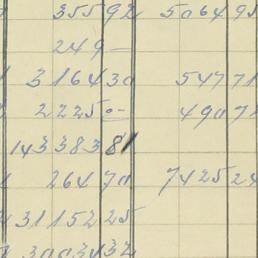 35592 506495
249 —
316430 54771
22250- 49072
1433838
26470 742524
3115225
3003432